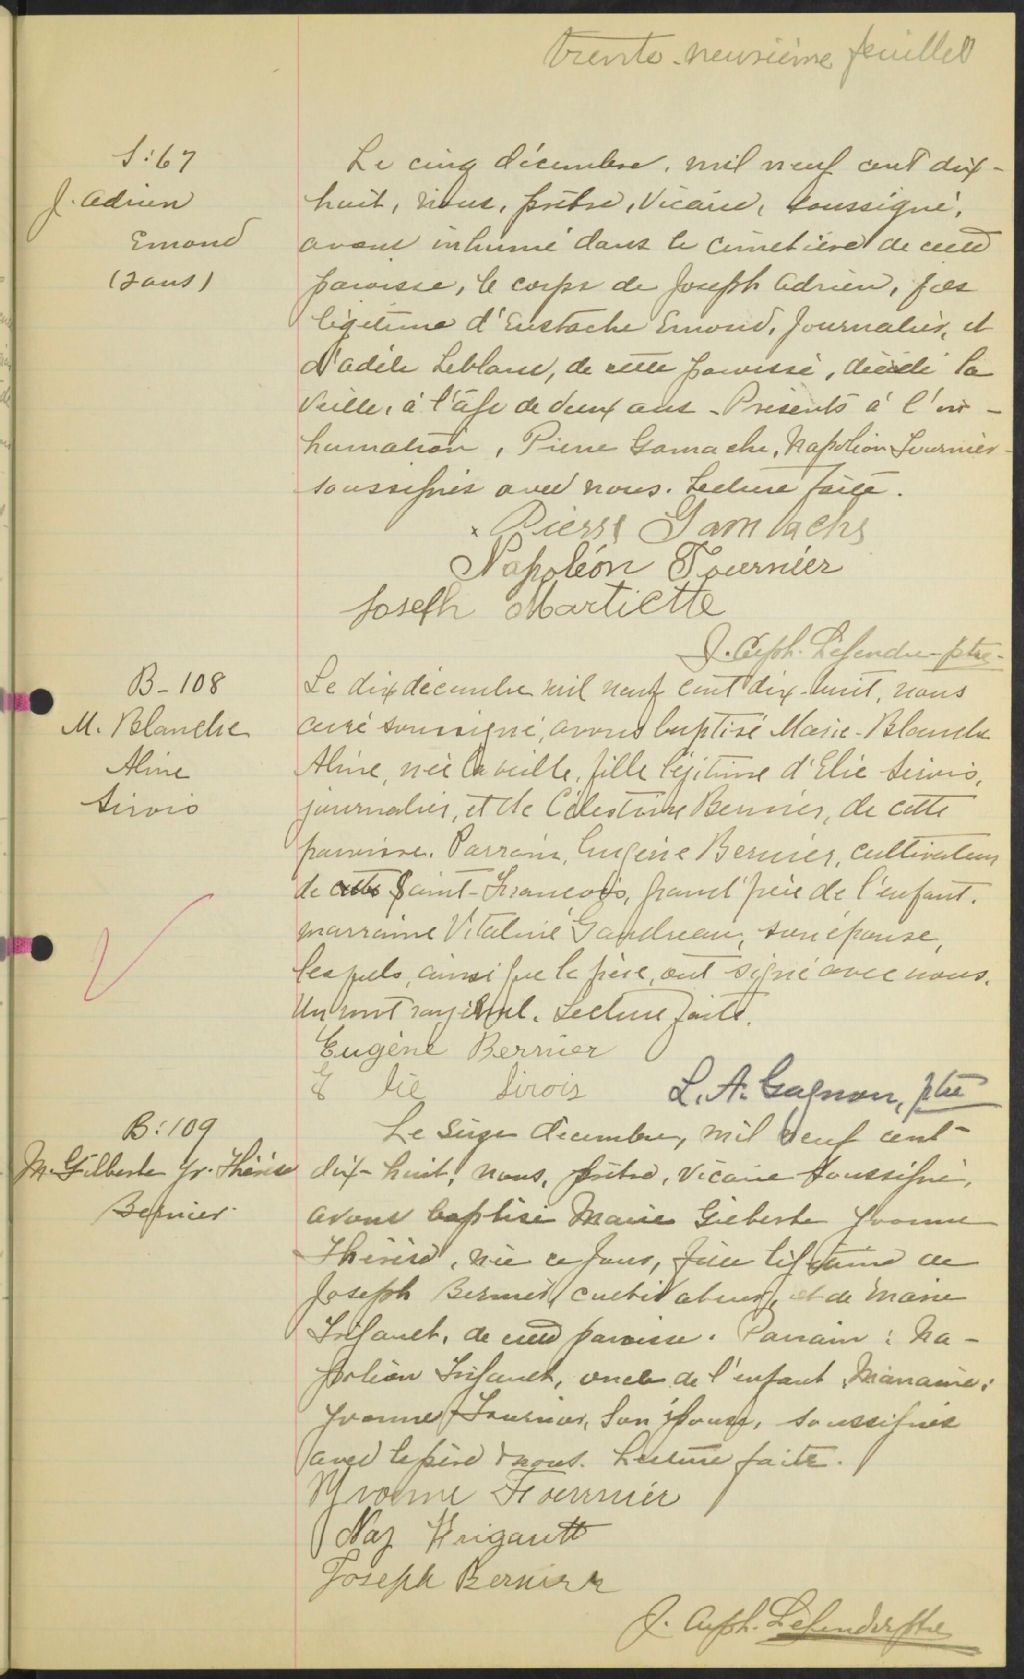 trente-neuvième feuillet
S:67
J. Adrien
Emond
(2 ans)
Le cinq décembre, mil neuf cent dix-
huit, nous, prêtre, vicaire, soussigné,
avons inhumé dans le cimetière de cette
paroisse, le corps de Joseph Adrien, fils
légitime d'Eustache Emond, journalier, et
d'Adèle Leblanc, de cette paroisse, décédé la
veille, à l'âge de deux ans - Présents à l'in-
humation, Pierre Gamache, Napoléon Fournier
soussignés avec nous. Lecture faite.
Pierre Gamache
Napoléon Fournier
Joseph Martiette
J. Alph. Lefendre ptre
B-108
M. Blanche
Aline
Sirois
Le dix décembre mil neuf cent dix-huit, nous
curé soussigné, avons baptisé Marie-Blanche
Aline, née la veille, fille légitime d'Elie Sirois,
journalier, et de Célestine Bernier, de cette
paroisse. Parrain, Eugène Bernier, cultivateur
de cette Saint-François, grand'père de l'enfant.
marraine Vitaline Gaudreau, son épouse,
lesquels, ainsi que le père, ont signé avec nous.
Un mot rayé nul. Lecture faite.
Eugène Bernier
Elie Sirois
L. A. Gagnon, ptre
B:109
M. Gilberte Yv. Thérèse
Bernier
Le seize décembre, mil neuf cent
dix-huit, nous, prêtre, vicaire soussigné,
avons baptisé Marie Gilberte Yvonne
Thérèse, née ce jour, fille légitime de
Joseph Bernier, cultivateur, et de Marie
Frigault, de cette paroisse. Parrain: Na-
poléon Frigault, oncle de l'enfant, Marraine:
Yvonne Fournier, son épouse, soussignés
avec le père & nous. Lecture faite.
Yvonne Fournier
Nap Frigault
Joseph Bernier
J. Alph. Lefendre ptre